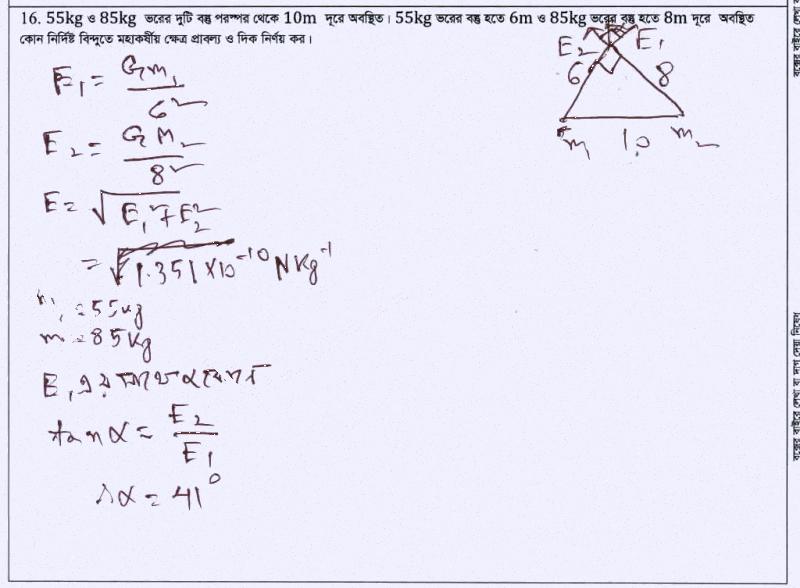 16. 55kg ও 85kg ভরের দুটি বস্তু পরস্পর থেকে 10m দূরে অবস্থিত। 55kg ভরের বস্তু হতে 6m ও 85kg ভরের বস্তু হতে 8m দূরে অবস্থিত
কোন নির্দিষ্ট বিন্দুতে মহাকর্ষীয় ক্ষেত্র প্রাবল্য ও দিক নির্ণয় কর।
E₂ E₁
6 8
m₁ 10 m₂
E₁ = Gm₁/6²
E₂ = GM₂/8²
E = √E₁²+E₂²
= 1.351×10⁻¹⁰ NKg⁻¹
m₁ = 55kg
m = 85kg
E₁ এর সাথে α কোণে
tanα = E₂/E₁
∴ α = 41°
বক্সের বাইরে লেখা বা দাগ দেয়া নিষেধ